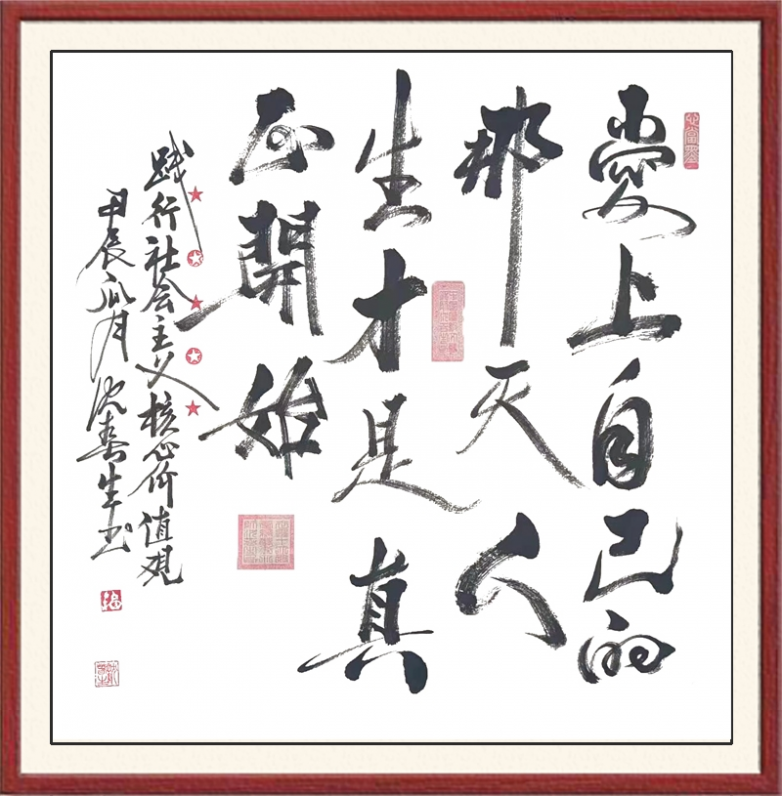 愛上自己的
那天人
生才是真
正開始
践行社会主义核心价值观
甲辰瓜月沈生书